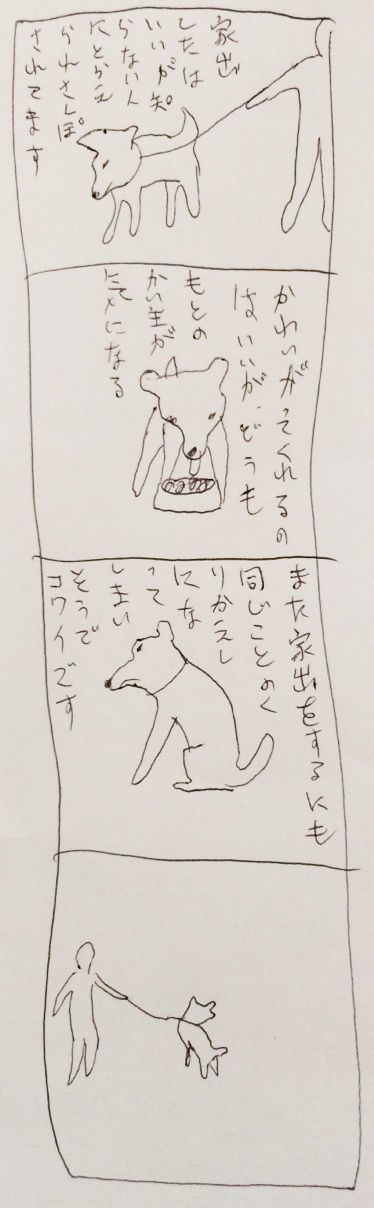 家出
したは
いいが知
らない人
にとらえ
られさんぽ
されてます
かわいがってくれるの
はいいが、どうも
もとの
かい主が
気になる
また家出をするにも
同じことのく
りかえし
にな
って
しまい
そうで
コワイです